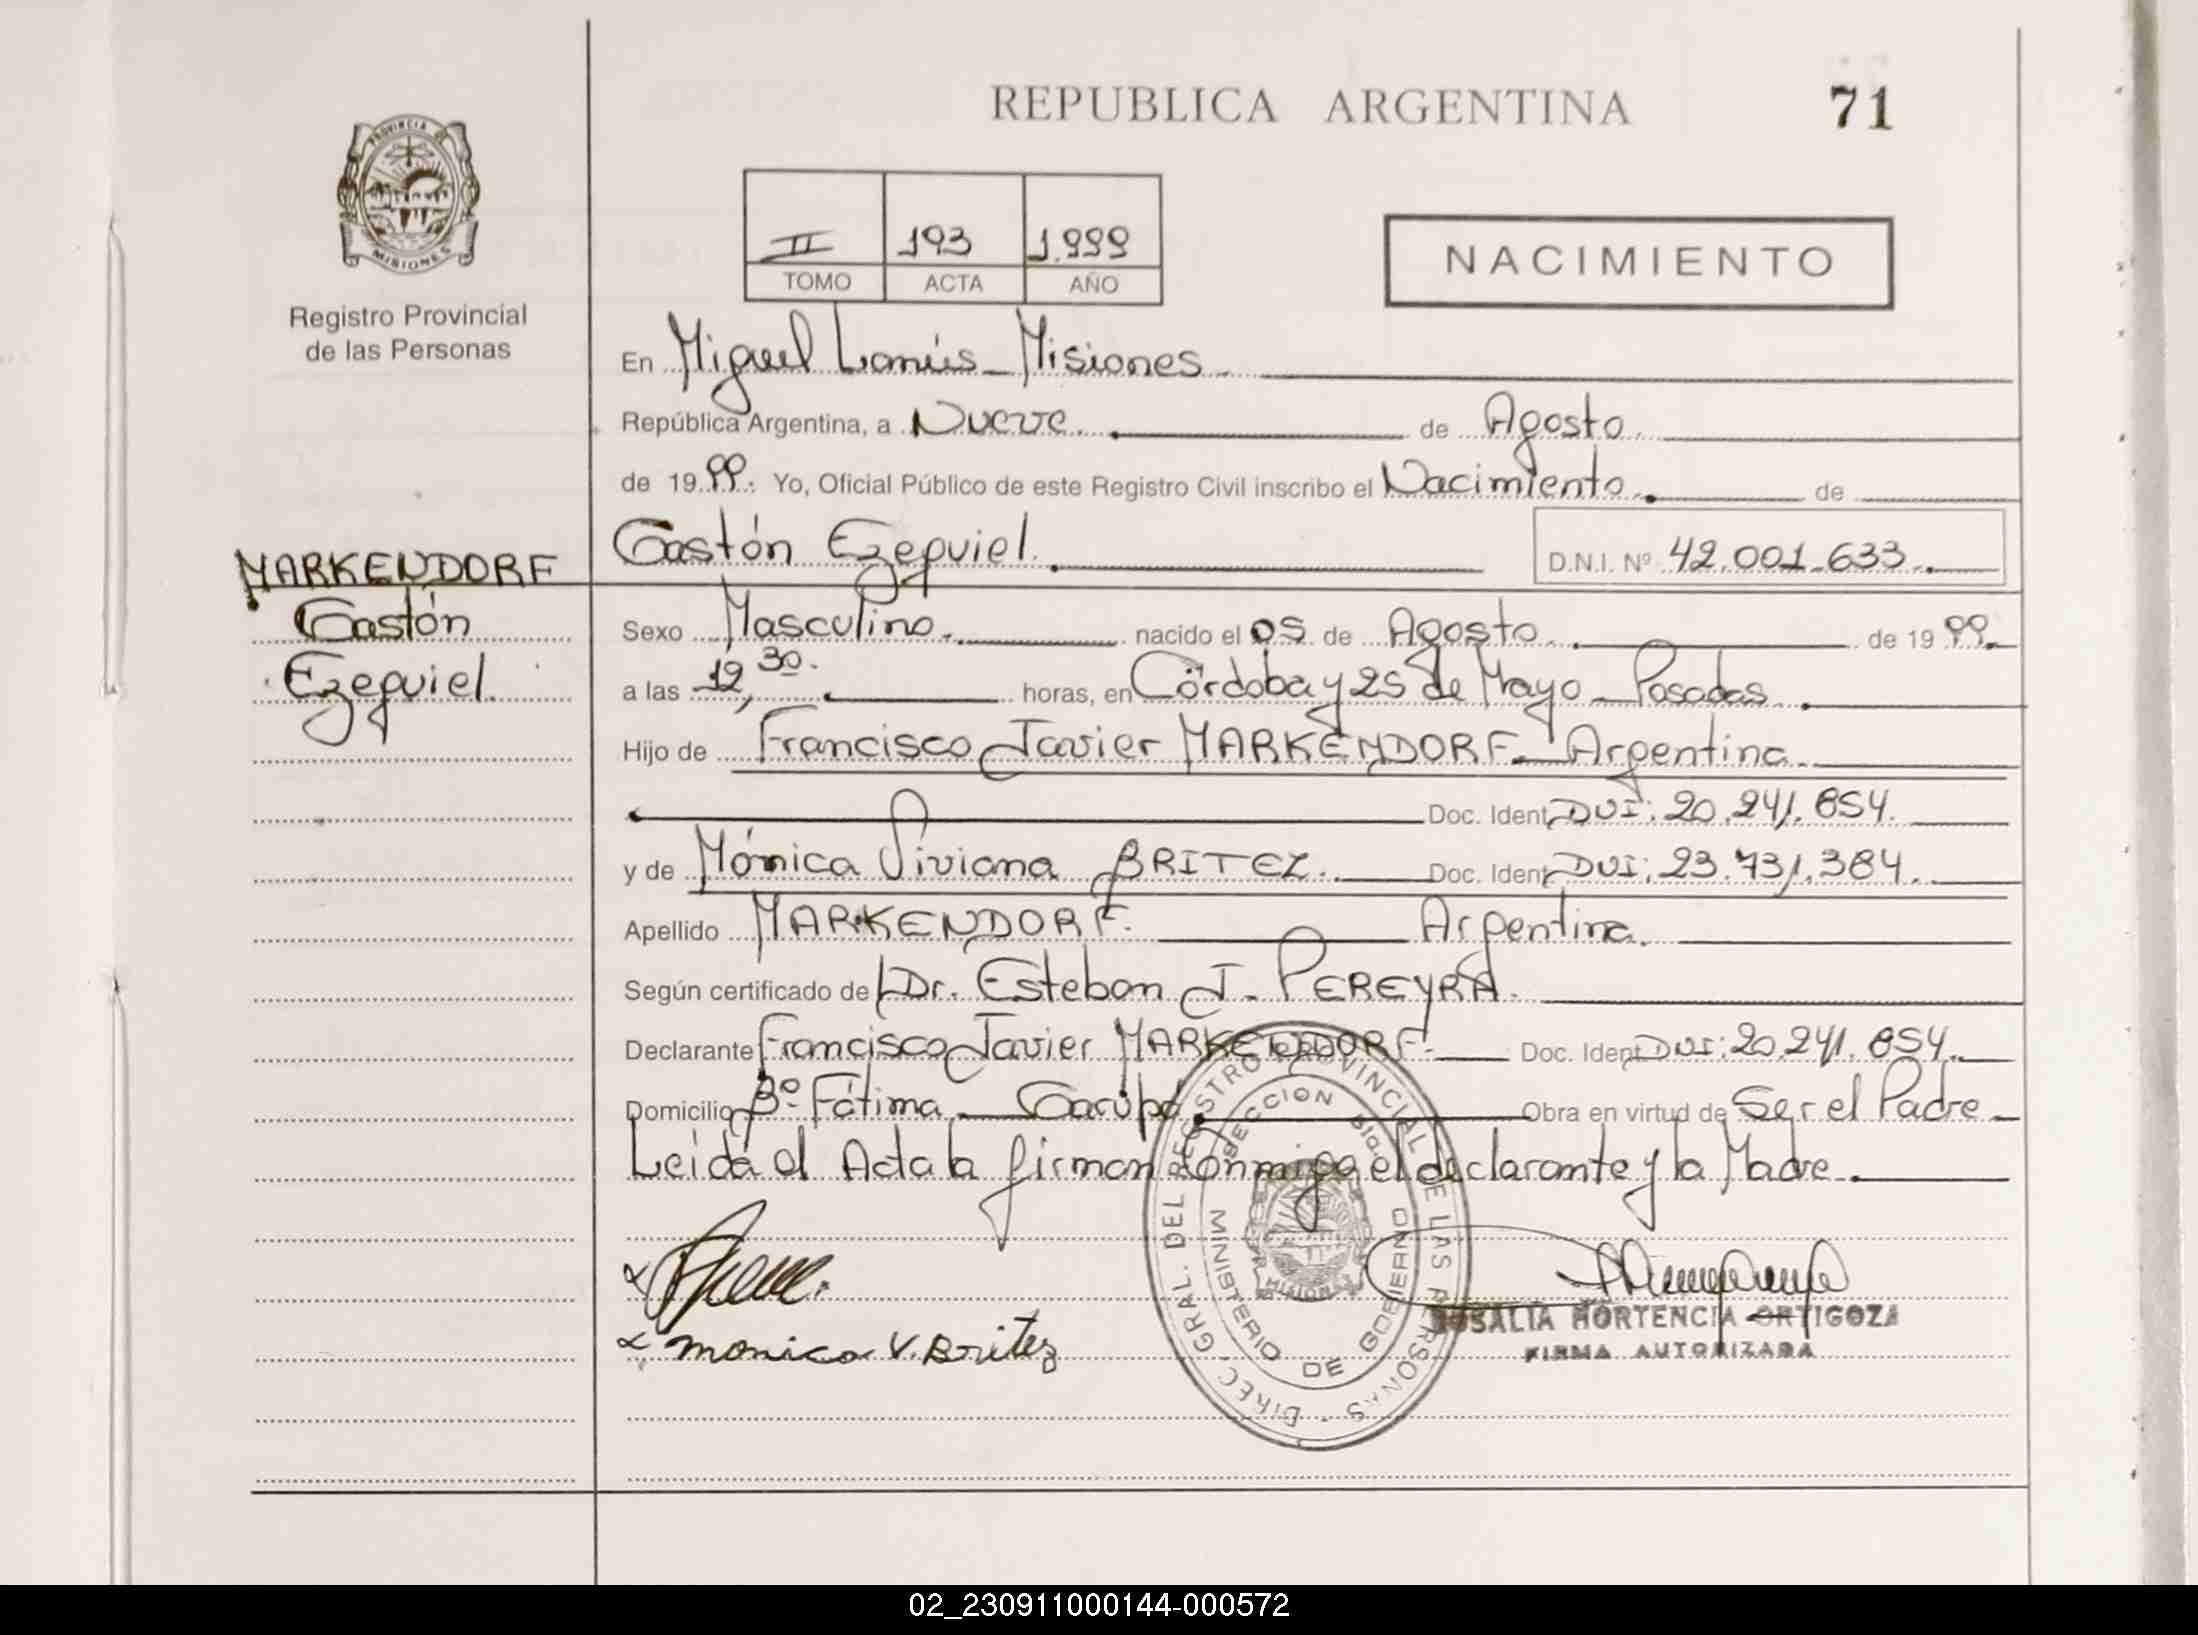 REPUBLICA ARGENTINA
71
PROVINCIA DE
MISIONES
Registro Provincial
de las Personas
II 193 1.999
TOMO ACTA AÑO
NACIMIENTO
En Miguel Lanús - Misiones
República Argentina, a Nueve. de Agosto
de 19 99. Yo, Oficial Público de este Registro Civil inscribo el Nacimiento. de
Gastón Ezequiel. D.N.I. Nº 42.001.633.
MARKENDORF
Gastón
Ezequiel.
Sexo Masculino. nacido el 05 de Agosto. de 19 99.
a las 12,30. horas, en Córdoba y 25 de Mayo - Posadas.
Hijo de Francisco Javier MARKENDORF - Argentina.
Doc. Ident. DUI: 20.241.854.
y de Mónica Viviana BRITEZ. Doc. Ident. DUI: 23.731.384.
Apellido MARKENDORF. Argentina.
Según certificado de Dr. Esteban J. PEREYRA.
Declarante Francisco Javier MARKENDORF. Doc. Ident. DUI: 20.241.854.
Domicilio Bº Fátima - Garupá Obra en virtud de Ser el Padre
Leida el Acta la firman conmigo el declarante y la Madre.
monica V. Britez
DIREC. GRAL. DEL REGISTRO PROVINCIAL DE LAS PERSONAS
MINISTERIO DE GOBIERNO
ROSALIA HORTENCIA ORTIGOZA
FIRMA AUTORIZADA
02_230911000144-000572